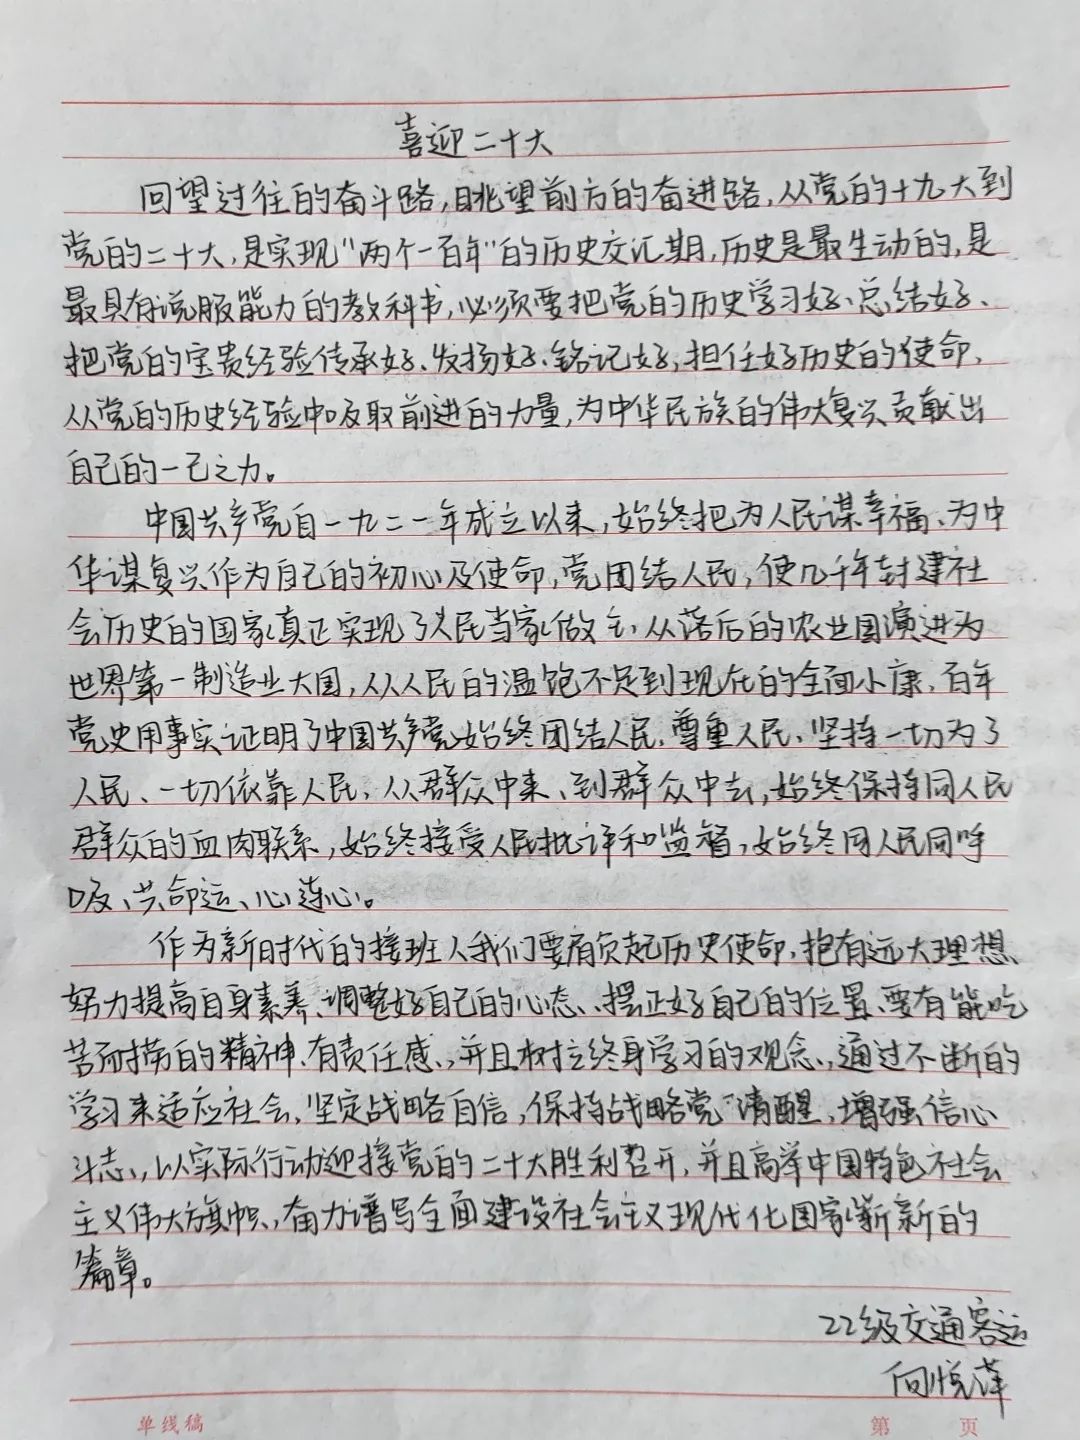 喜迎二十大
回望过往的奋斗路,眺望前方的奋进路,从党的十九大到
党的二十大,是实现"两个一百年"的历史交汇期,历史是最生动的,是
最具有说服能力的教科书,必须要把党的历史学习好、总结好、
把党的宝贵经验传承好、发扬好、铭记好,担任好历史的使命,
从党的历史经验中吸取前进的力量,为中华民族的伟大复兴贡献出
自己的一己之力。
中国共产党自一九二一年成立以来,始终把为人民谋幸福、为中
华谋复兴作为自己的初心及使命,党团结人民,使几千年封建社
会历史的国家真正实现了人民当家做主,从落后的农业国演进为
世界第一制造业大国,从人民的温饱不足到现在的全面小康,百年
党史用事实证明了中国共产党始终团结人民、尊重人民、坚持一切为了
人民、一切依靠人民,从群众中来、到群众中去,始终保持同人民
群众的血肉联系,始终接受人民批评和监督,始终同人民同呼
吸、共命运、心连心。
作为新时代的接班人我们要肩负起历史使命,抱有远大理想
努力提高自身素养、调整好自己的心态、摆正好自己的位置、要有能吃
苦而耐劳的精神、有责任感、并且树立终身学习的观念、通过不断的
学习来适应社会,坚定战略自信,保持战略清醒,增强信心
斗志、以实际行动迎接党的二十大胜利召开,并且高举中国特色社会
主义伟大旗帜,奋力谱写全面建设社会主义现代化国家崭新的
篇章。
22级交通客运
向悦萍
单线稿 第 页